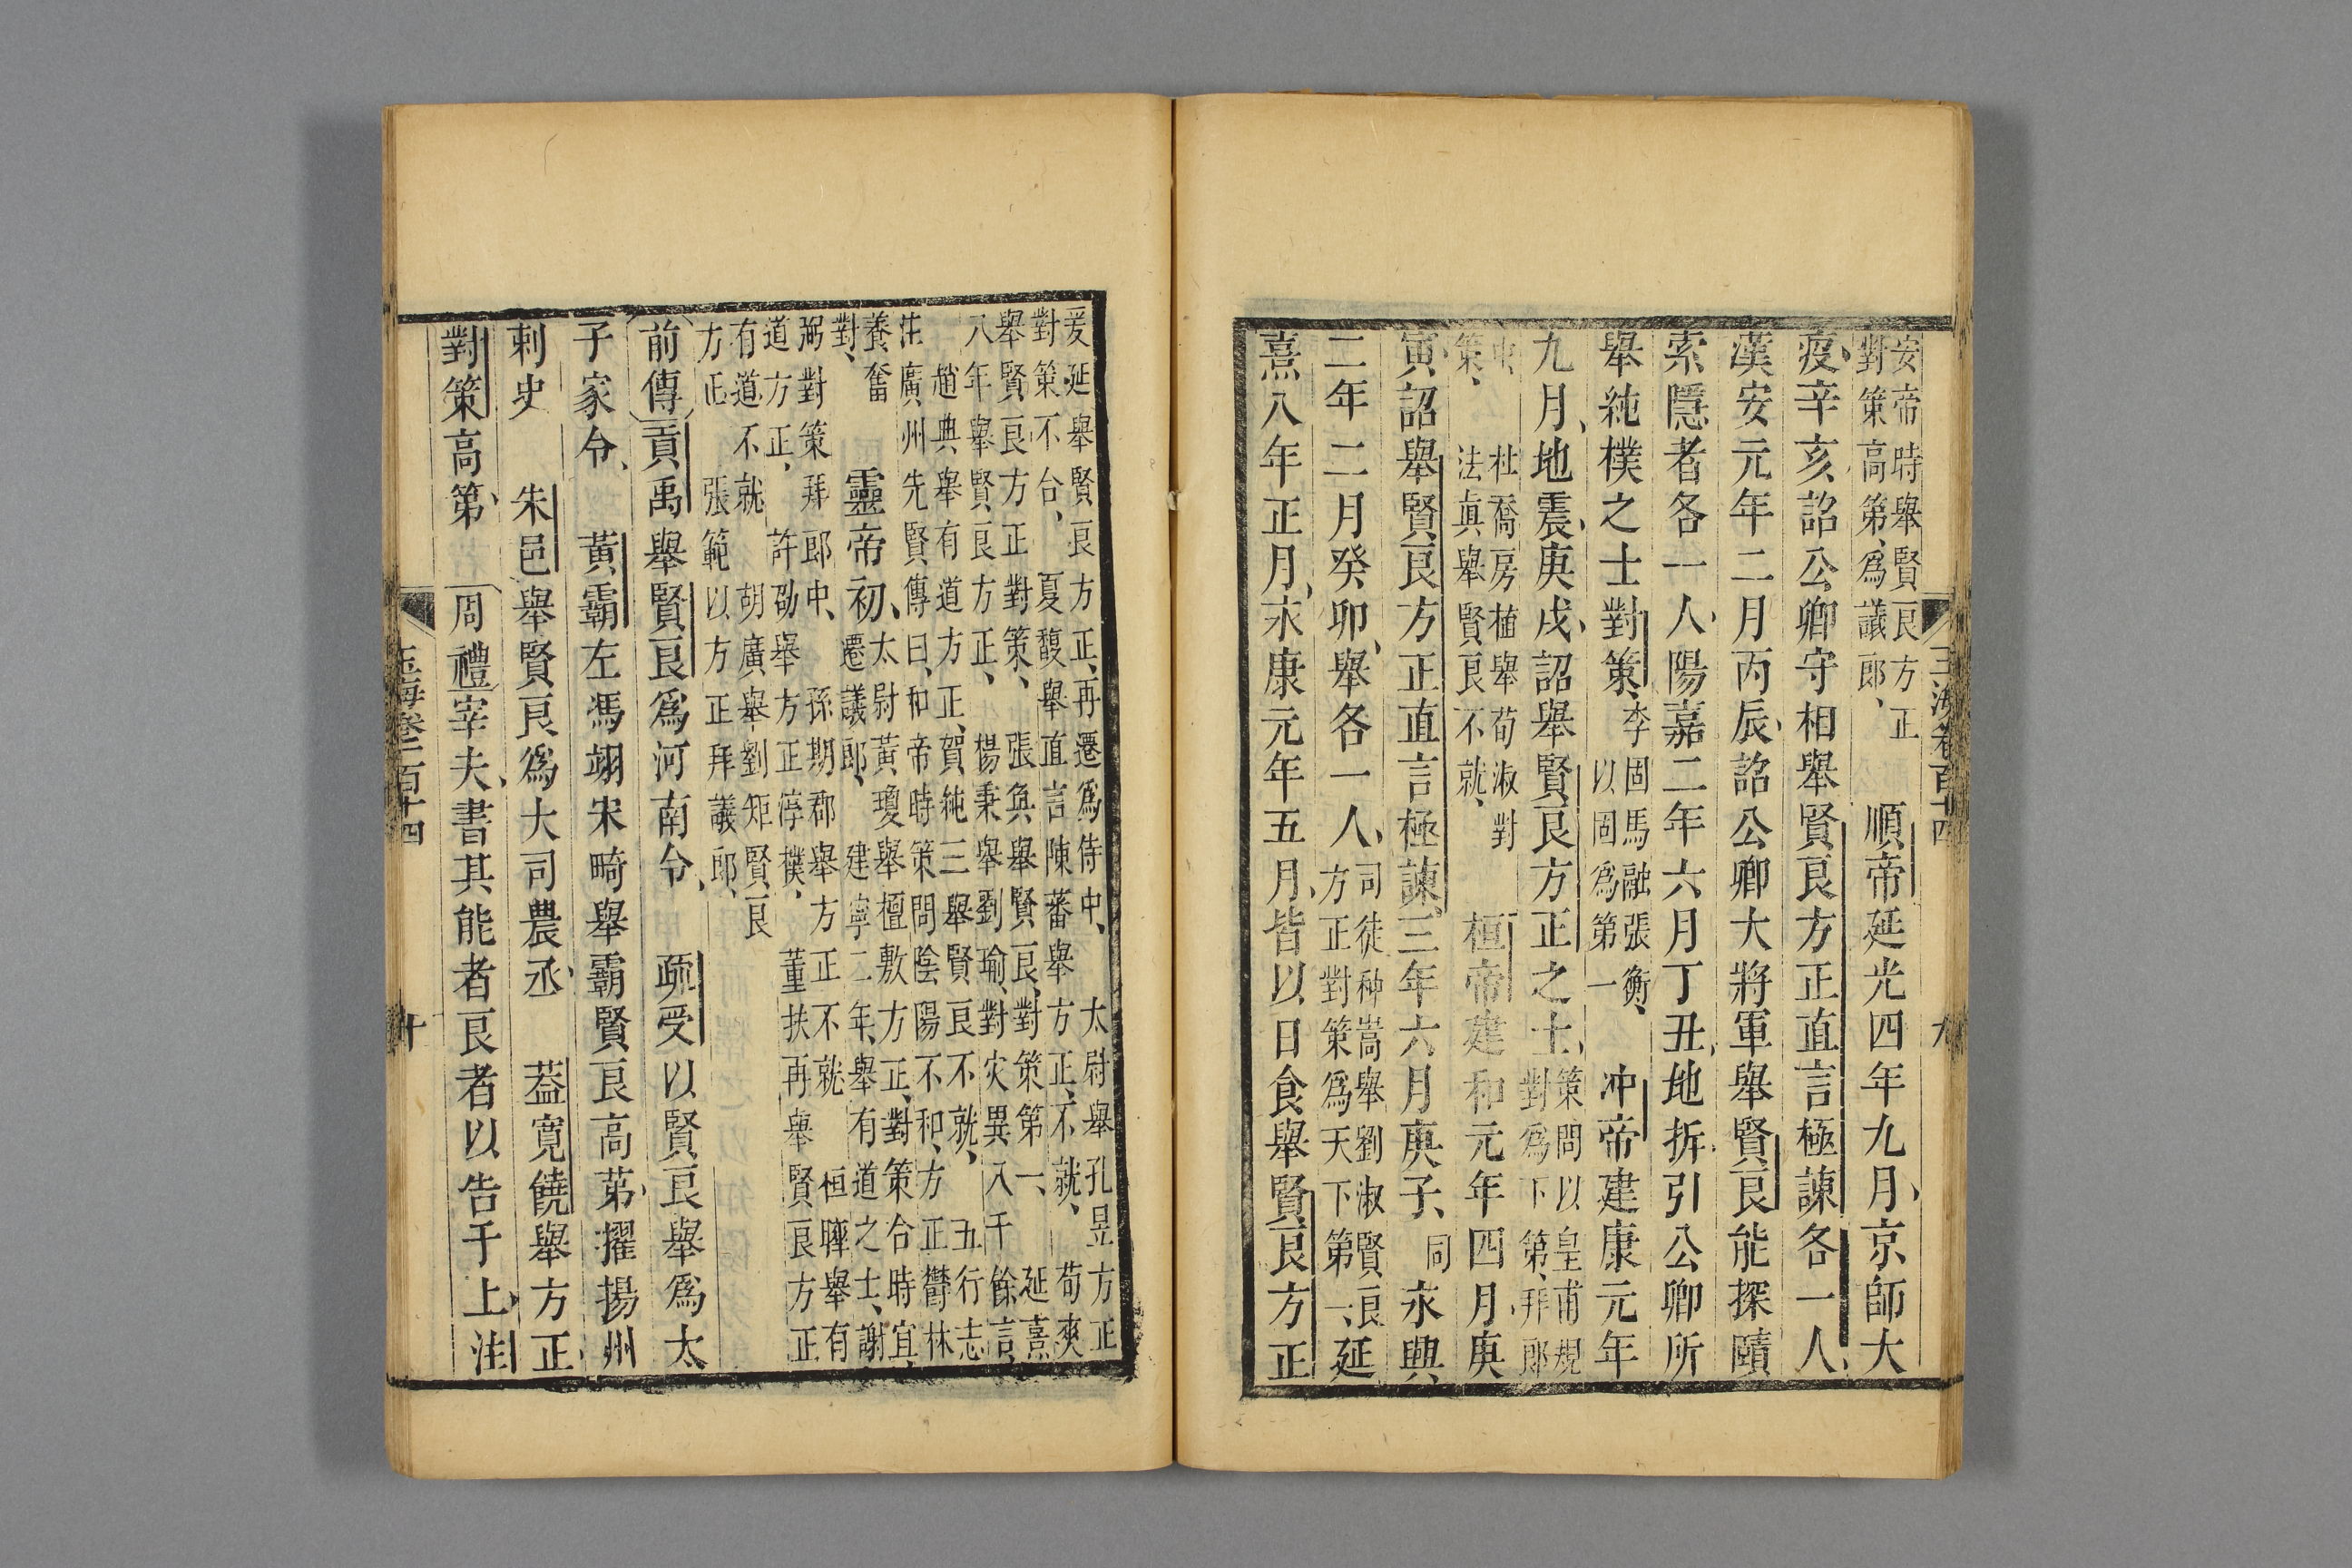 玉海卷百十四
九
安帝時舉賢良方正
對策高第、爲議郎、
順帝延光四年九月、京師大
疫、辛亥詔公卿守相舉賢良方正直言極諫各一人、
漢安元年二月丙辰、詔公卿大將軍舉賢良能探賾
索隱者各一人、陽嘉二年六月丁丑、地拆、引公卿所
舉純樸之士對策、
李固馬融張衡、
以固爲第一
冲帝建康元年
九月、地震、庚戌、詔舉賢良方正之士、
策問以皇甫規
對爲下第、拜郎
中、杜喬房植舉荀淑對
策、法真舉賢良不就、
桓帝建和元年四月、庚
寅、詔舉賢良方正直言極諫、三年六月庚子、同 永興
二年二月癸卯、舉各一人、
司徒种嵩舉劉淑賢良
方正對策爲天下第一、
延
熹八年正月、永康元年五月、皆以日食舉賢良方正
爰延舉賢良方正、再遷爲侍中、 太尉舉孔昱方正
對策不合、 夏馥舉直言陳蕃舉方正、不就、 荀爽
舉賢良方正對策、 張奐舉賢良、對策第一、 延熹
八年舉賢良方正、 楊秉舉劉瑜、對灾異八千餘言、
趙典舉有道方正、賀純三舉賢良不就、 五行志
注廣州先賢傳曰、和帝時策問陰陽不和、方正鬱林
養奮
對、
靈帝初、
太尉黃瓊舉檀敷方正、對策合時宜、
遷議郎、 建寧二年、舉有道之士、謝
弼對策拜郎中、 孫期郡舉方正不就 桓曄舉有
道方正、 許劭舉方正淳樸、 董扶再舉賢良方正
有道不就 胡廣舉劉矩賢良
方正 張範以方正拜議郎、
前傳貢禹舉賢良爲河南令、 疏受以賢良舉爲太
子家令、 黃霸左馮翊宋畸舉霸賢良高第、擢揚州
刺史 朱邑舉賢良爲大司農丞、 葢寬饒舉方正、
對策高第、 周禮宰夫、書其能者良者以告于上、注
玉海卷一百十四
十